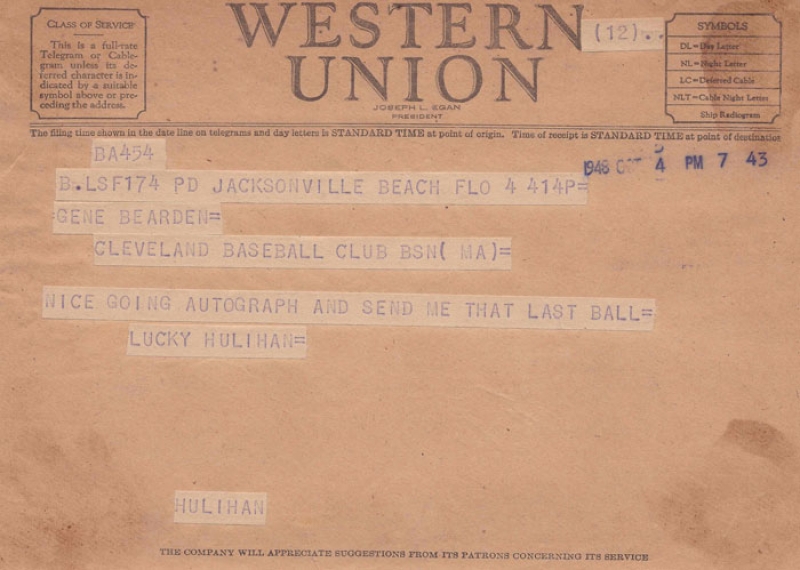 CLASS OF SERVICE
This is a full-rate
Telegram or Cable-
gram unless its de-
ferred character is in-
dicated by a suitable
symbol above or pre-
ceding the address.
WESTERN
UNION
JOSEPH L. EGAN
PRESIDENT
(12)..
SYMBOLS
DL=Day Letter
NL=Night Letter
LC=Deferred Cable
NLT=Cable Night Letter
Ship Radiogram
The filing time shown in the date line on telegrams and day letters is STANDARD TIME at point of origin. Time of receipt is STANDARD TIME at point of destination
BA454
1948 OCT 4 PM 7 43
B.LSF174 PD JACKSONVILLE BEACH FLO 4 414P=
GENE BEARDEN=
CLEVELAND BASEBALL CLUB BSN( MA)=
NICE GOING AUTOGRAPH AND SEND ME THAT LAST BALL=
LUCKY HULIHAN=
HULIHAN
THE COMPANY WILL APPRECIATE SUGGESTIONS FROM ITS PATRONS CONCERNING ITS SERVICE